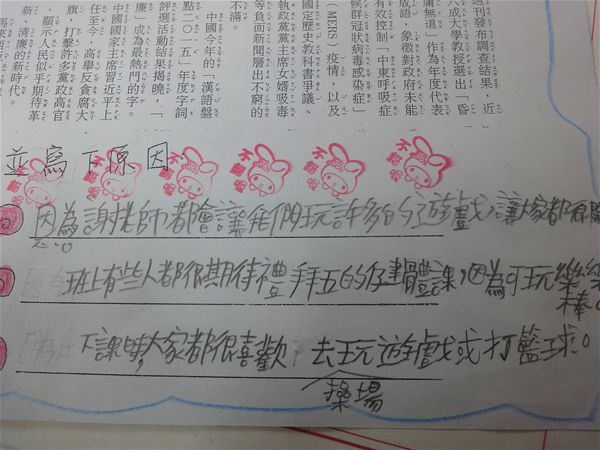 週刊發布調查結果，近
六成大學教授選出「昏
庸無道」作為年度代表
成語，象徵對政府未能
有效控制「中東呼吸症
候群冠狀病毒感染症」
（MERS）疫情，以及
國定歷史教科書爭議、
執政黨黨主席女婿吸毒
等負面新聞層出不窮的
不滿。
中國今年的「漢語盤
點二〇一五」年度字詞
評選活動結果揭曉，「
廉」成為最熱門的字。
中國國家主席習近平上
任至今，高舉反貪腐大
旗，打擊許多黨政高官
，顯示人民似乎期待革
新、清廉的新時代。
並寫下原因
因為謝老師都會讓我們玩許多的遊戲，讓大家都很開
班上有些人都很期待禮拜五的健體課，因為可玩樂樂
棒。
下課時，大家都很喜歡去玩遊戲或打籃球。
操場